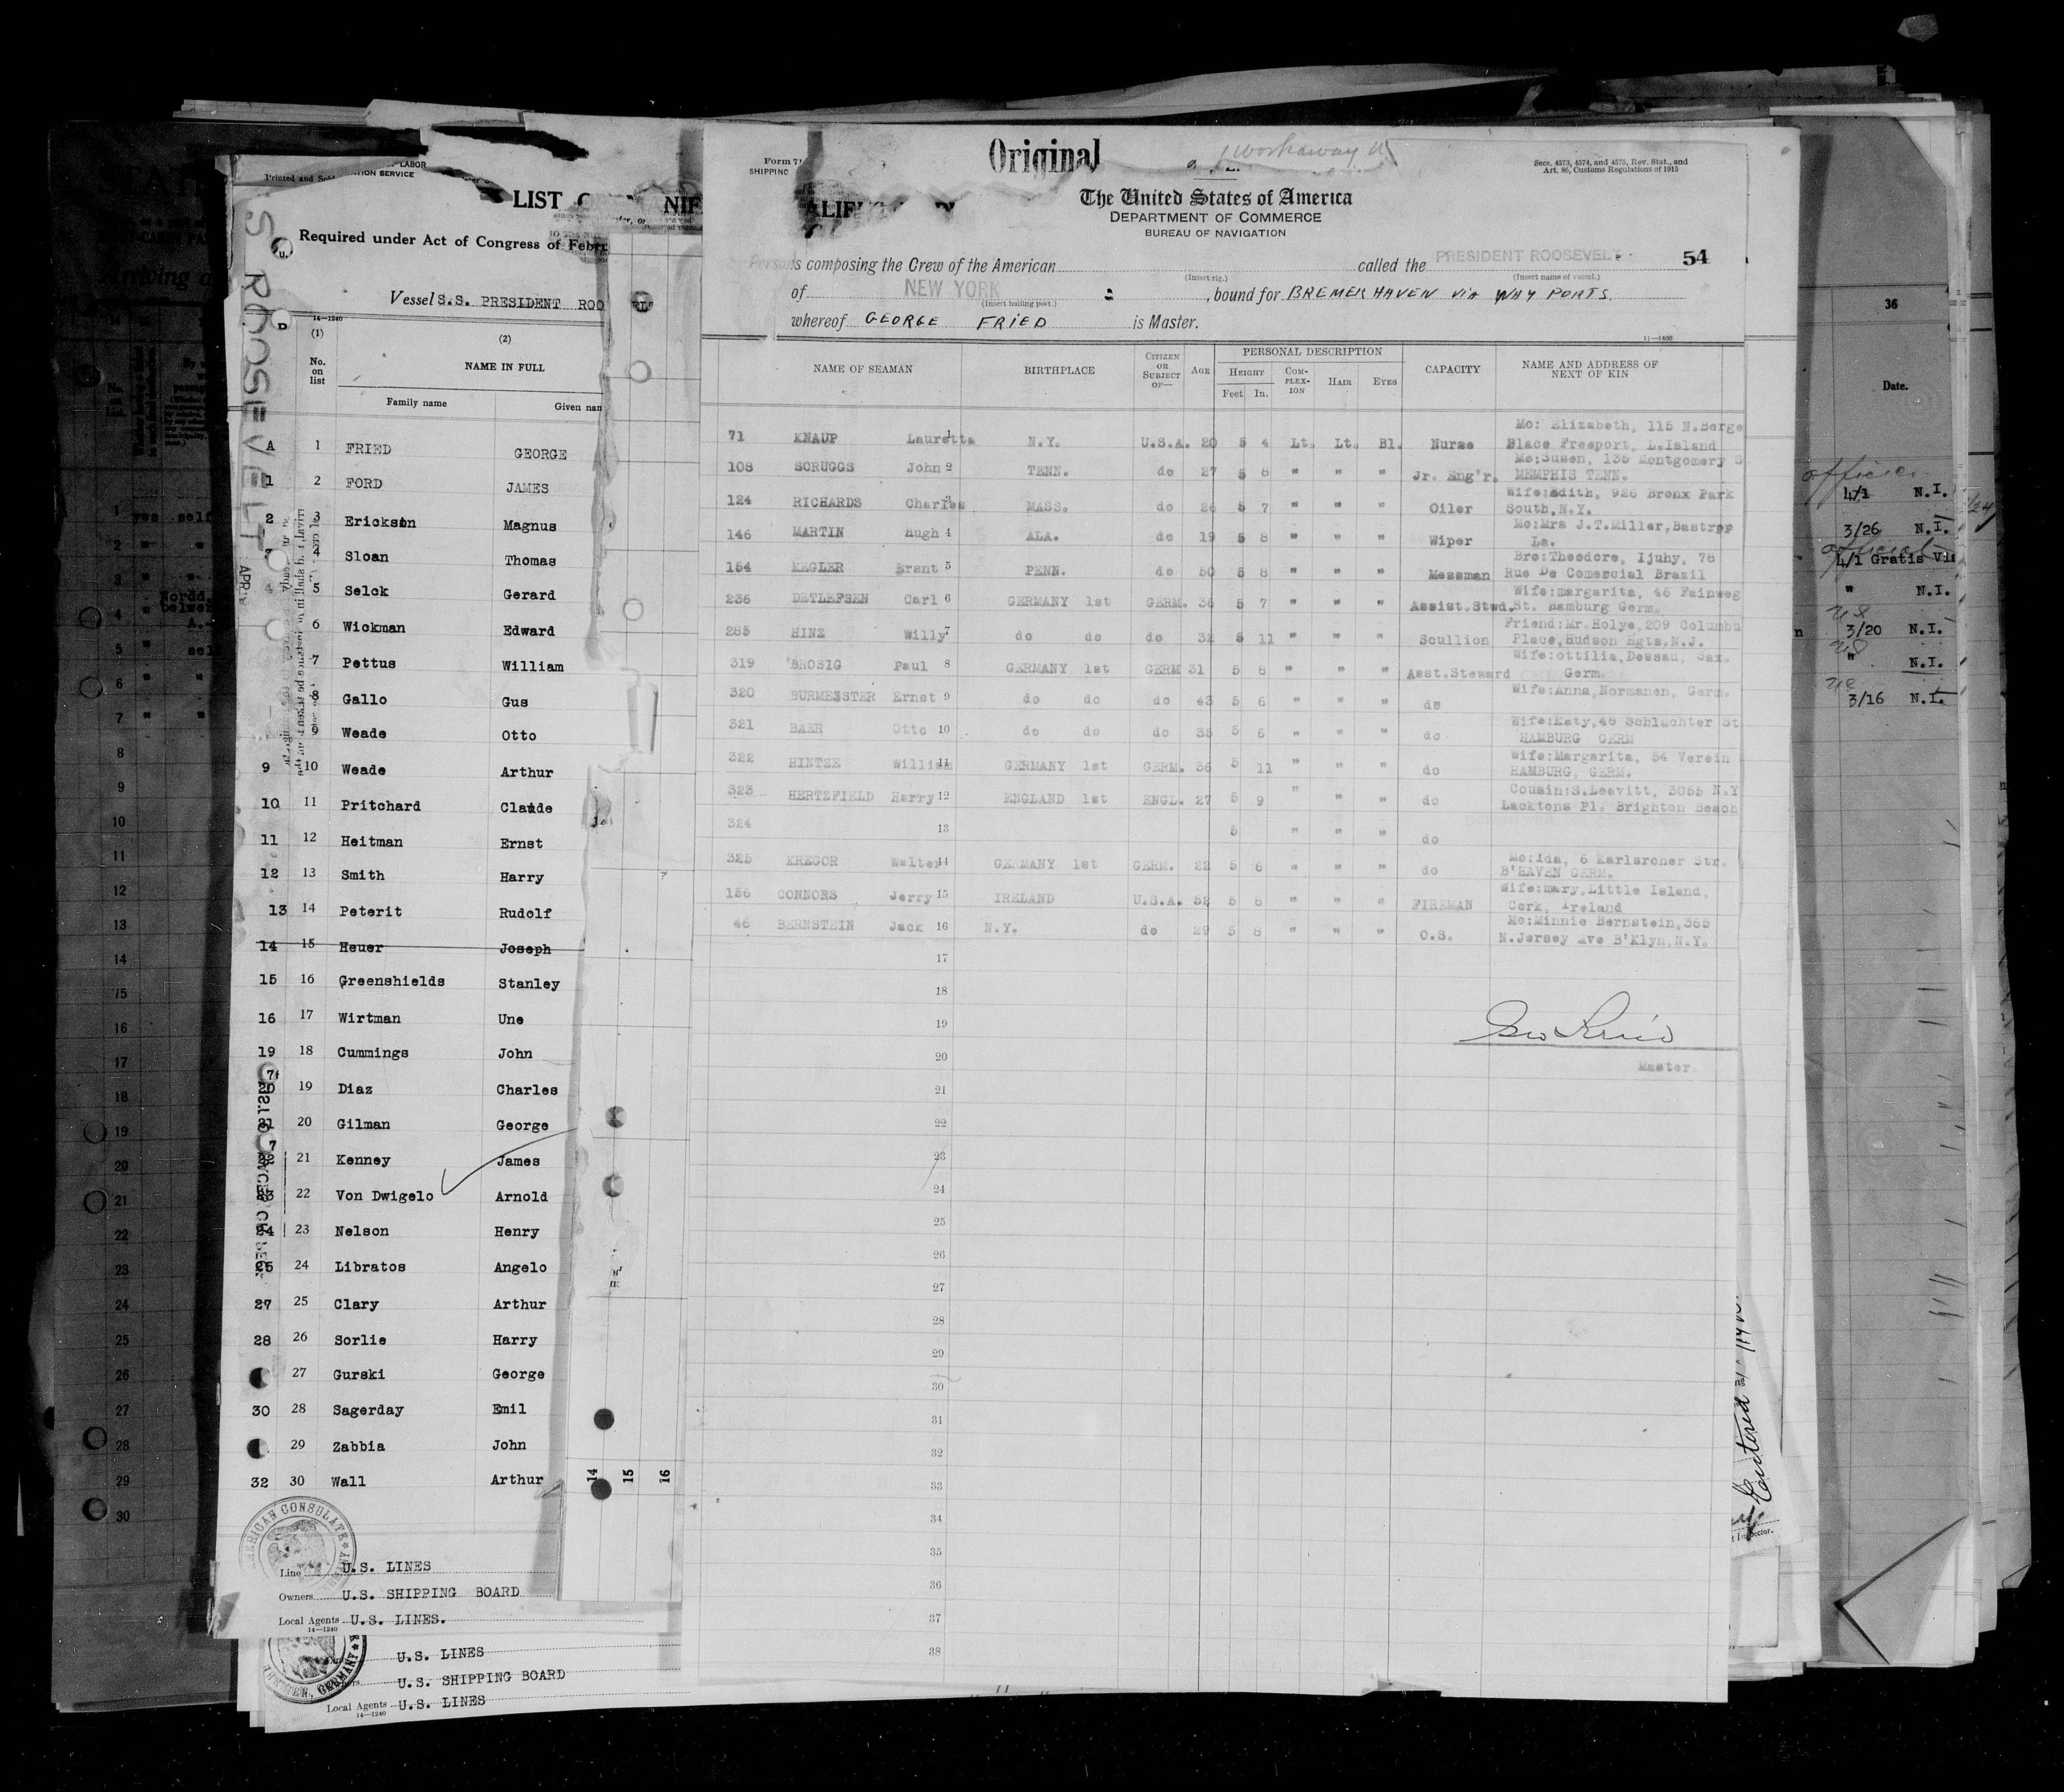 LABOR
Printed and Sold
TION SERVICE
LIST
NIF
Required under Act of Congress of Febru
Vessel S.S. PRESIDENT ROO
S. ROOSEVELT
APR.
14—1240
(1)
(2)
No. on list
NAME IN FULL
Family name
Given nam
A 1 FRIED GEORGE
1 2 FORD JAMES
2 3 Erickson Magnus
4 Sloan Thomas
4 5 Selck Gerard
6 Wickman Edward
7 Pettus William
8 Gallo Gus
9 Weade Otto
9 10 Weade Arthur
10 11 Pritchard Claude
11 12 Heitman Ernst
12 13 Smith Harry
13 14 Peterit Rudolf
14 15 Heuer Joseph
15 16 Greenshields Stanley
16 17 Wirtman Une
19 18 Cummings John
20 19 Diaz Charles
21 20 Gilman George
22 21 Kenney James
23 22 Von Dwigelo Arnold
24 23 Nelson Henry
25 24 Libratos Angelo
27 25 Clary Arthur
28 26 Sorlie Harry
27 Gurski George
30 28 Sagerday Emil
29 Zabbia John
32 30 Wall Arthur
14 15 16
AMERICAN CONSULATE
Line U.S. LINES
Owners U.S. SHIPPING BOARD
Local Agents U.S. LINES.
14—1240
U.S. LINES
U.S. SHIPPING BOARD
Local Agents U.S. LINES
14—1240
BREMEN, GERMANY
Form 71
SHIPPING
Original
Workaway
Secs. 4573, 4574, and 4575, Rev. Stat., and
Art. 86, Customs Regulations of 1915
The United States of America
DEPARTMENT OF COMMERCE
BUREAU OF NAVIGATION
Persons composing the Crew of the American called the PRESIDENT ROOSEVELT 54
(Insert rig.) (Insert name of vessel.)
of NEW YORK , bound for BREMERHAVEN VIA WAY PORTS.
(Insert hailing port.)
whereof GEORGE FRIED is Master.
11—1400
NAME OF SEAMAN
BIRTHPLACE
CITIZEN OR SUBJECT OF—
AGE
PERSONAL DESCRIPTION
HEIGHT
Feet In.
COM-PLEX-ION
HAIR
EYES
CAPACITY
NAME AND ADDRESS OF NEXT OF KIN
71 KNAUP Lauretta 1 N.Y. U.S.A. 20 5 4 Lt. Lt. Bl. Nurse Mo: Elizabeth, 115 N.Berge
Place Freeport, L.Island
108 SCRUGGS John 2 TENN. do 27 5 8 " " " Jr. Eng'r. Mo:Susen, 135 Montgomery S
MEMPHIS TENN.
124 RICHARDS Charles 3 MASS. do 26 5 7 " " " Oiler Wife:Edith, 926 Bronx Park
South,N.Y.
146 MARTIN Hugh 4 ALA. do 19 5 8 " " " Wiper Mo:Mrs J.T.Miller,Bastrpp
La.
154 KEGLER Ernst 5 PENN. do 50 5 8 " " " Messman Bro:Theodore, Ijuhy, 78
Rue De Comercial Brazil
236 DETLEFSEN Carl 6 GERMANY 1st GERM. 36 5 7 " " " Assist.Stwd. Wife:margarita, 46 Fainweg
St. Hamburg Germ.
285 HINZ Willy 7 do do do 32 5 11 " " " Scullion Friend:Mr.Holye,209 Columbu
Place,Hudson Hgts.N.J.
319 BROSIG Paul 8 GERMANY 1st GERM 31 5 8 " " " Asst.Steward Wife:ottilia,Dessau, Sax.
Germ.
320 BURMESSTER Ernst 9 do do do 43 5 6 " " " do Wife:Anna,Normanen, Germ.
321 BAER Otto 10 do do do 38 5 6 " " " do Wife:Katy,46 Schlachter St
HAMBURG GERM
322 HINTZE William 11 GERMANY 1st GERM. 36 5 11 " " " do Wife:Margarita, 54 Verein
HAMBURG, GERM.
323 HERTZFIELD Harry 12 ENGLAND 1st ENGL. 27 5 9 " " " do Cousin:S.Leavitt, 3055 N.Y
Lacktons Pl. Brighton Beach
324 13 5 " " " do
325 KREGOR Walter 14 GERMANY 1st GERM. 22 5 6 " " " do Mo:Ida, 6 Karlsroher Str.
B'HAVEN GERM.
156 CONNORS Jerry 15 IRELAND U.S.A. 52 5 8 " " " FIREMAN Wife:mary,Little Island,
Cork, Ireland
46 BERNSTEIN Jack 16 N.Y. do 29 5 8 " " " O.S. Mo:Minnie Bernstein,365
N.Jersey Ave B'Klyn,N.Y.
17
18
19
20
21
22
23
24
25
26
27
28
29
30
31
32
33
34
35
36
37
38
Geo Fried
Master.
36
Date.
4/1 N.I.
3/26 N.I.
4/1 Gratis Vis
" N.I.
3/20 N.I.
" N.I.
3/16 N.I.
Entered
Inspector.
1 yes self
2
3
4
5
6
7
8
9
10
11
12
13
14
15
16
17
18
19
20
21
22
23
24
25
26
27
28
29
30